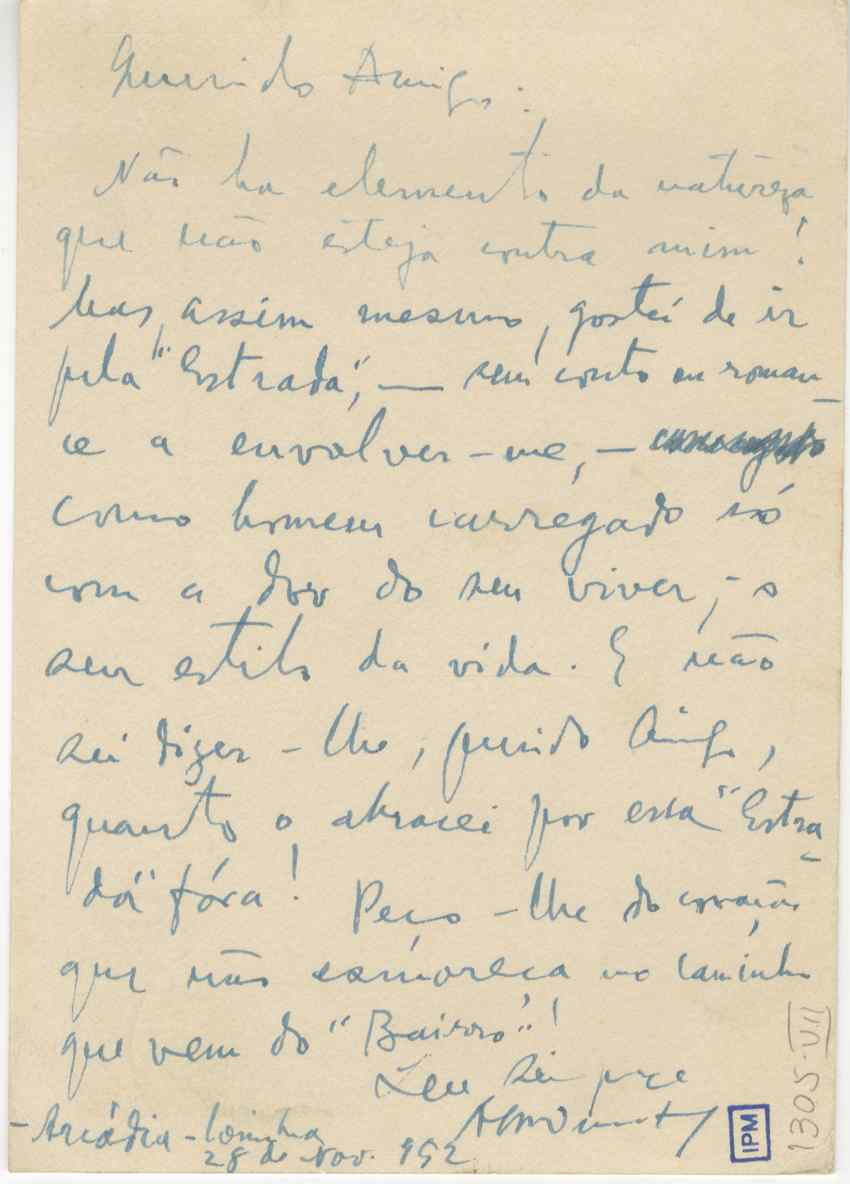 Querido Amigo:
Não ha elemento da natureza
que não esteja contra mim!
Mas, assim mesmo, gostei de ir
pela "Estrada", — sem conto ou roman-
ce a envolver-me, —
como homem carregado só
com a dor do seu viver, — o
seu estilo da vida. E não
sei dizer-lhe, querido Amigo,
quanto o abracei por essa "Estra-
da" fóra! Peço-lhe do coração
que não esmoreça no caminho
que vem do "Bairro"!
Seu
- Arcádia -
28 de Nov. 952
IPM
1305-VII